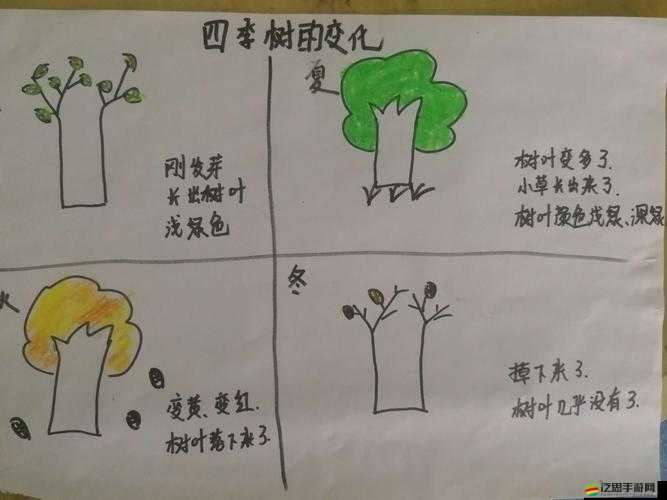 四季树的变化
刚发芽
长出树叶
浅绿色
夏
树叶变多了.
小草长出来了.
树叶颜色浅绿、深绿
秋
变黄、变红.
树叶落下来了
冬
掉下来了.
树叶几乎没有了.
泛思手游网